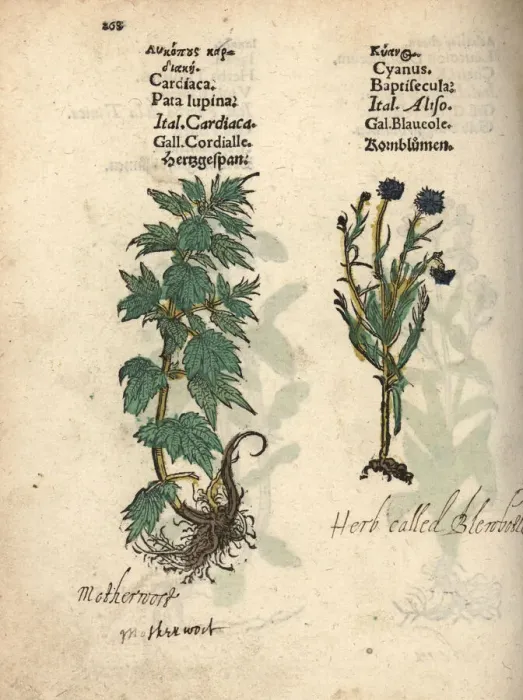 268
Λυκόπυς καρ-
διακή.
Cardiaca.
Pata lupina?
Ital. Cardiaca.
Gall. Cordialle.
Hertzgespan.
Cyanus.
Baptisecula?
Ital. Aliso.
Gal. Blaueole.
Kornblůmen.
Herb called
Motherwort
Motherwort